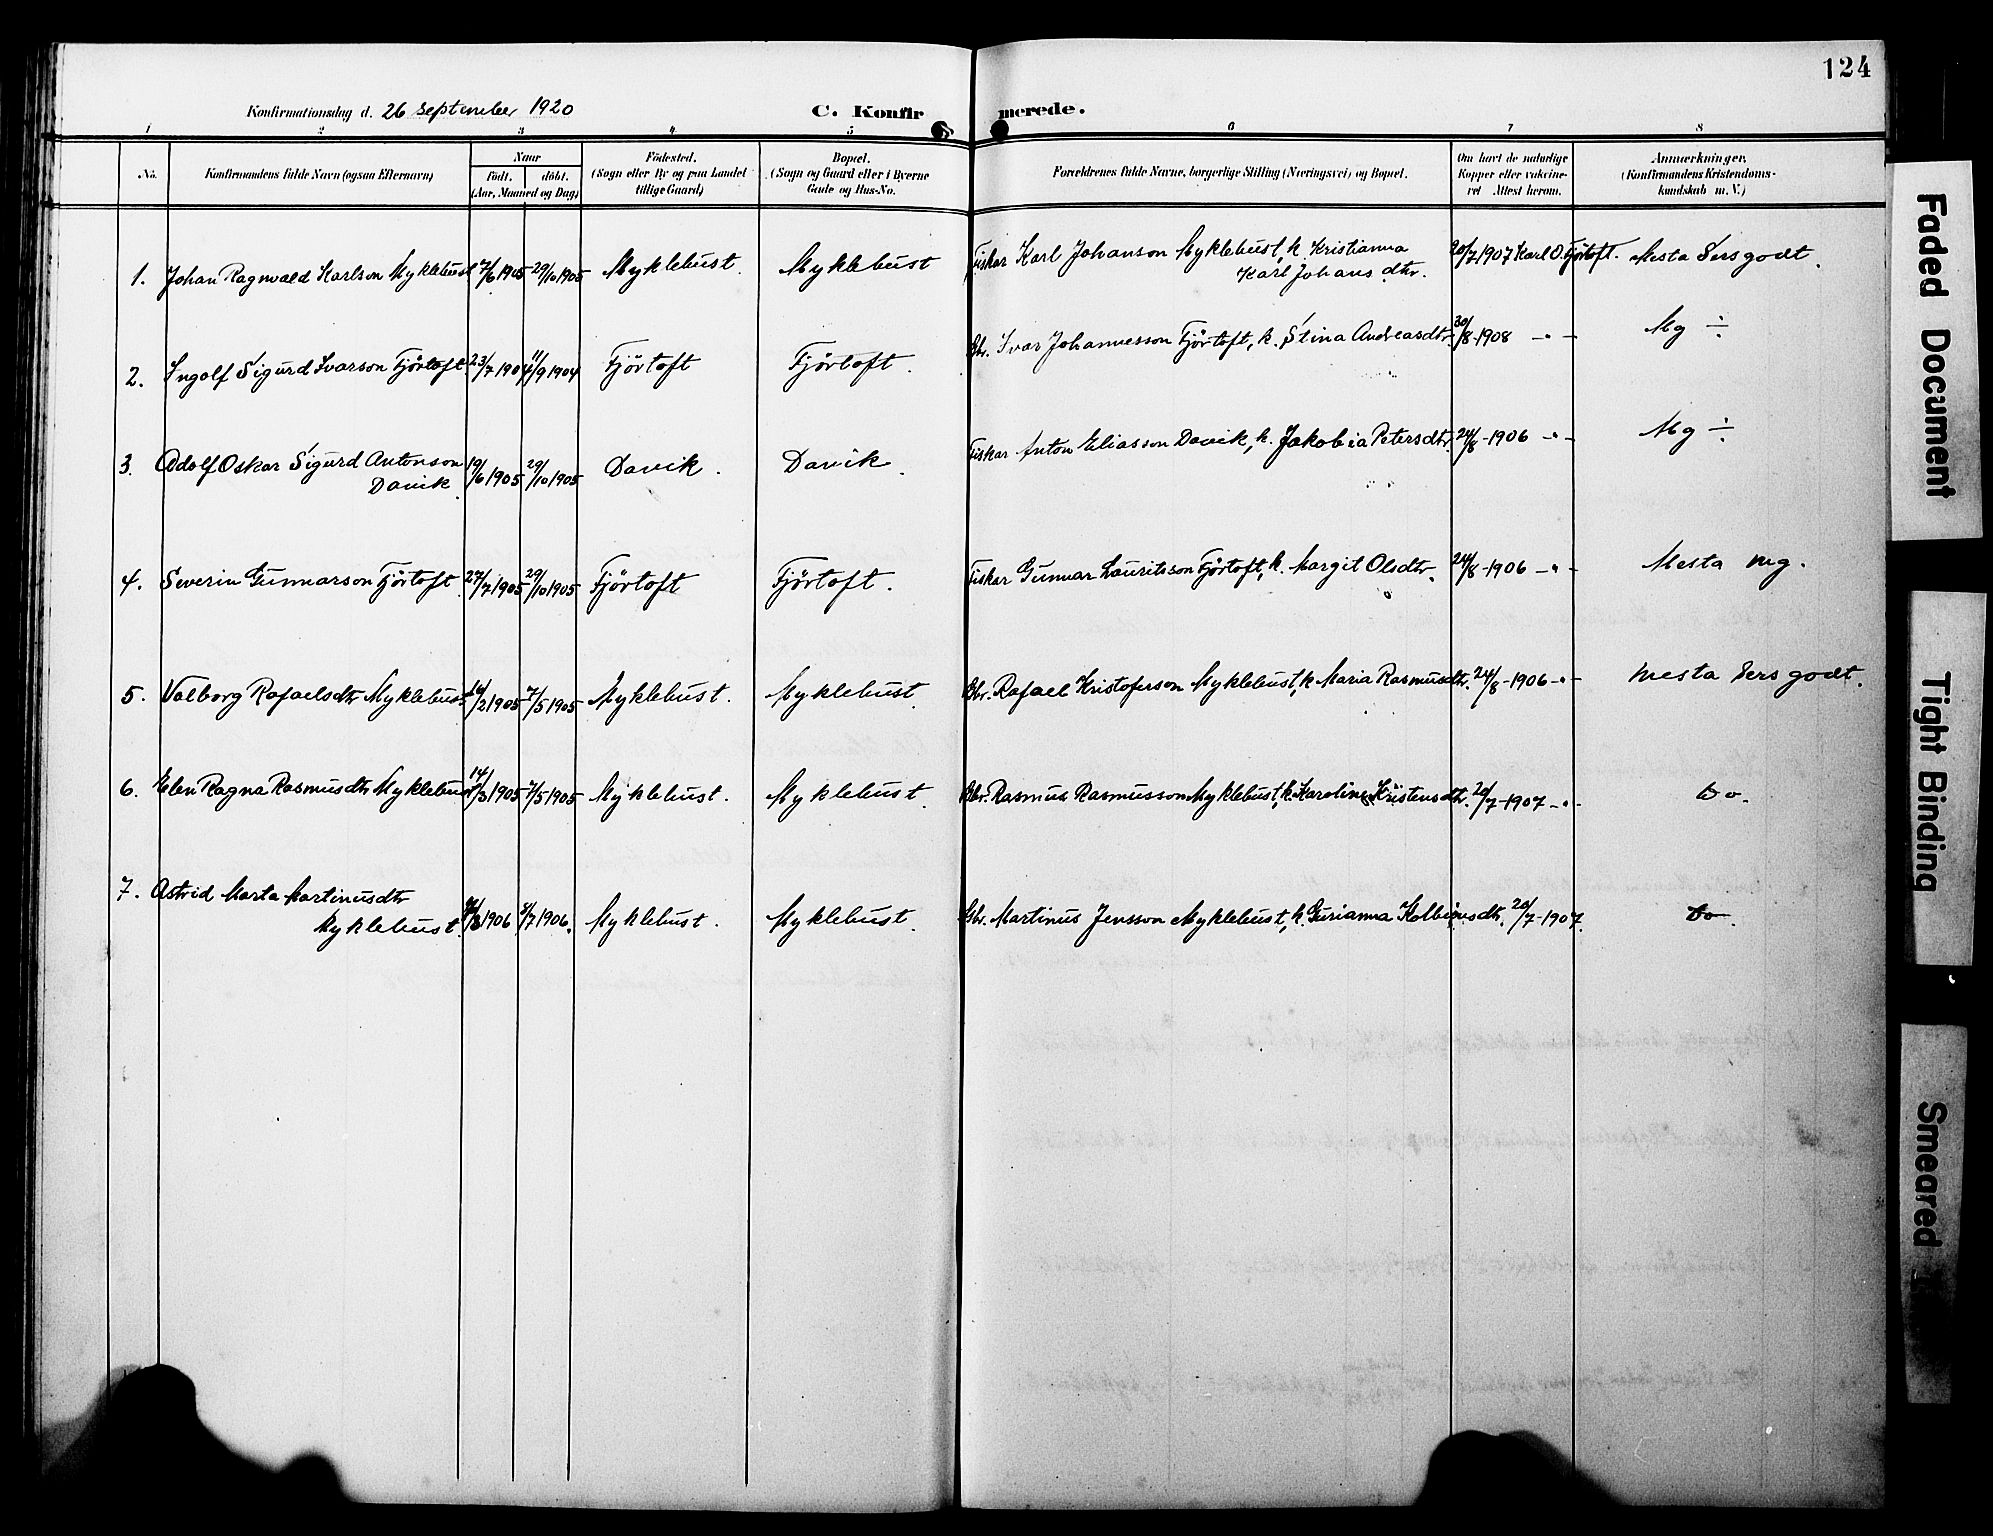 124
Konfirmationsdag d. 26 september 1920 C. Konfirmerede.
1 2 3 4 5 6 7 8
No. Konfirmandens fulde Navn (ogsaa Efternavn) Naar födt. döbt. (Aar, Maaned og Dag) Födested. (Sogn eller By og paa Landet tillige Gaard) Bopæl. (Sogn og Gaard eller i Byerne Gade og Hus-No. Forældrenes fulde Navne, borgerlige Stilling (Næringsvei) og Bopæl. Om havt de naturlige Kopper eller vaccineret Attest herom. Anmærkninger. (Konfirmandens Kristendomskundskab m. V.)
1. Johan Ragnvald Karlson Myklebust 7/6 1905 29/10 1905 Myklebust. Myklebust Fiskar Karl Johanson Myklebust, k. Kristianna Karl Johans dtr. 20/7 1907 Karl O. Fjörtoft. Mesta Sers godt.
2. Ingolf Sigurd Ivarson Fjörtoft 23/7 1904 11/9 1904 Fjörtoft Fjörtoft. Gbr. Ivar Johannesson Fjörtoft, k. Stina Andreasdtr. 30/8-1908 -"- Mg ÷
3. Adolf Oskar Sigurd Antonson Davik. 19/6 1905 29/10 1905 Davik. Davik. Fiskar Anton Eliasson Davik, k. Jakobia Petersdtr. 24/8-1906 -"- Mg ÷
4. Severin Gunnarson Fjörtoft. 27/7 1905 29/10 1905 Fjörtoft Fjörtoft. Fiskar Gunnar Lauritsson Fjörtoft, k. Margit Olsdtr. 24/8-1906 -"- Mesta mg.
5. Valborg Rafaelsdtr Myklebust 16/2 1905 7/5 1905 Myklebust. Myklebust. Gbr. Rafael Kristoferson Myklebust, k. Maria Rasmusdtr. 24/8-1906 -"- Mesta Sers godt.
6. Elen Ragna Rasmusdtr Myklebust 14/3 1905 7/5 1905 Myklebust. Myklebust. Gbr. Rasmus Rasmusson Myklebust, k. Karoline Kristensdtr. 20/7-1907 -"- Do.
7. Astrid Marta Martinusdtr Myklebust. 1906 1906. Myklebust. Myklebust. Gbr. Martinus Jensson Myklebust, k. Gurianna Kolbeinsdtr. 20/7-1907. Do.
Faded Document
Tight Binding
Smeared